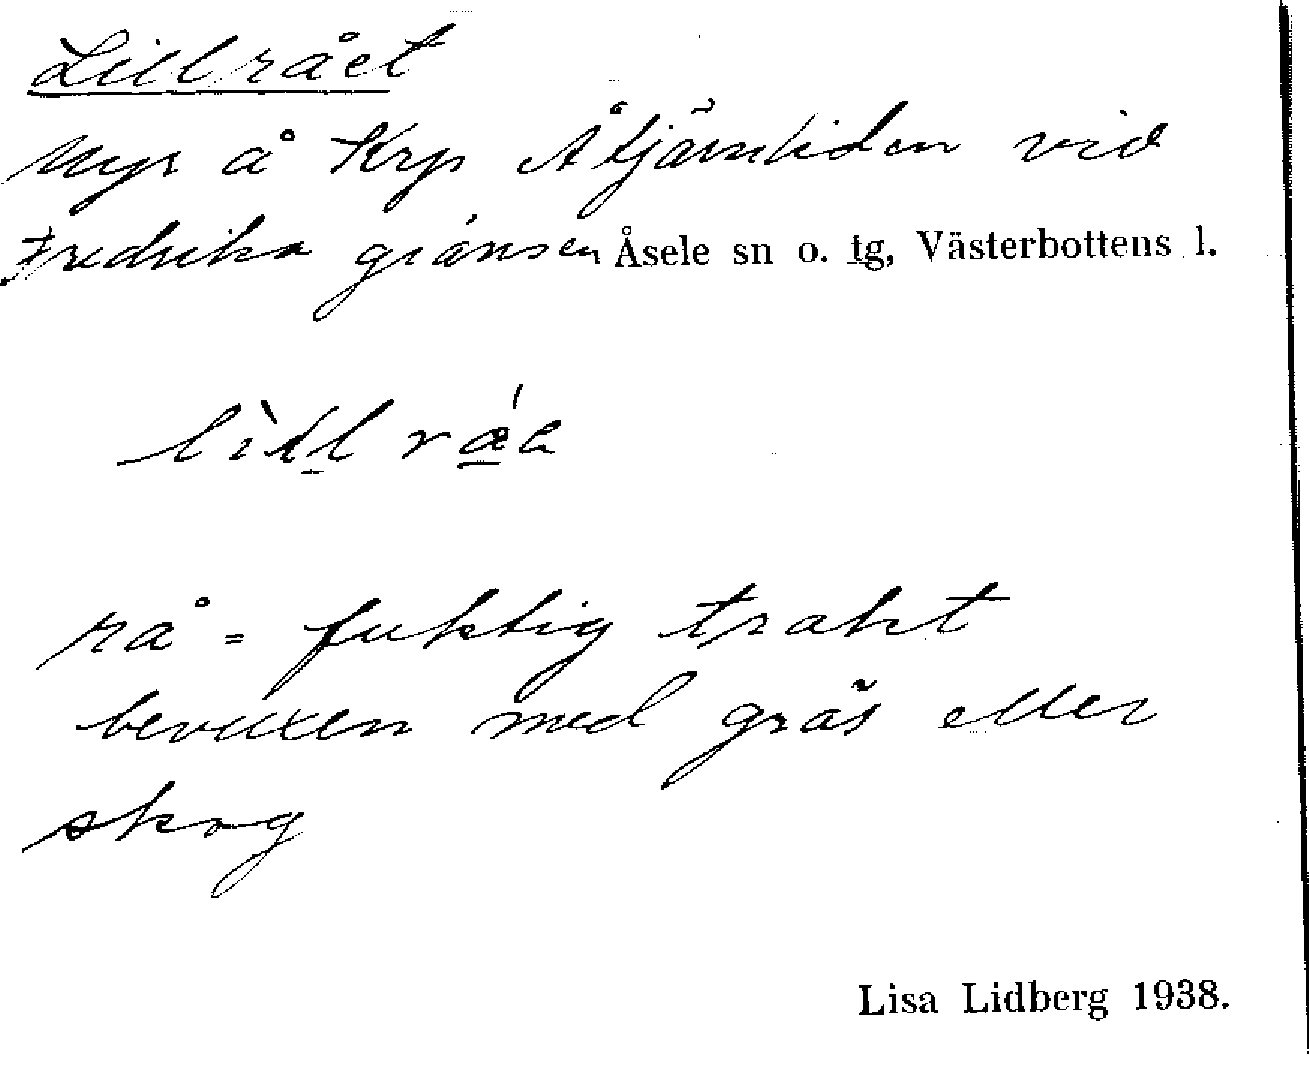 Lillrået
Myr å Krp Åtjärnliden vid
Fredrika gränsen Åsele sn o. tg, Västerbottens l.
rå = fuktig trakt
bevuxen med gräs eller
skog
Lisa Lidberg 1938.